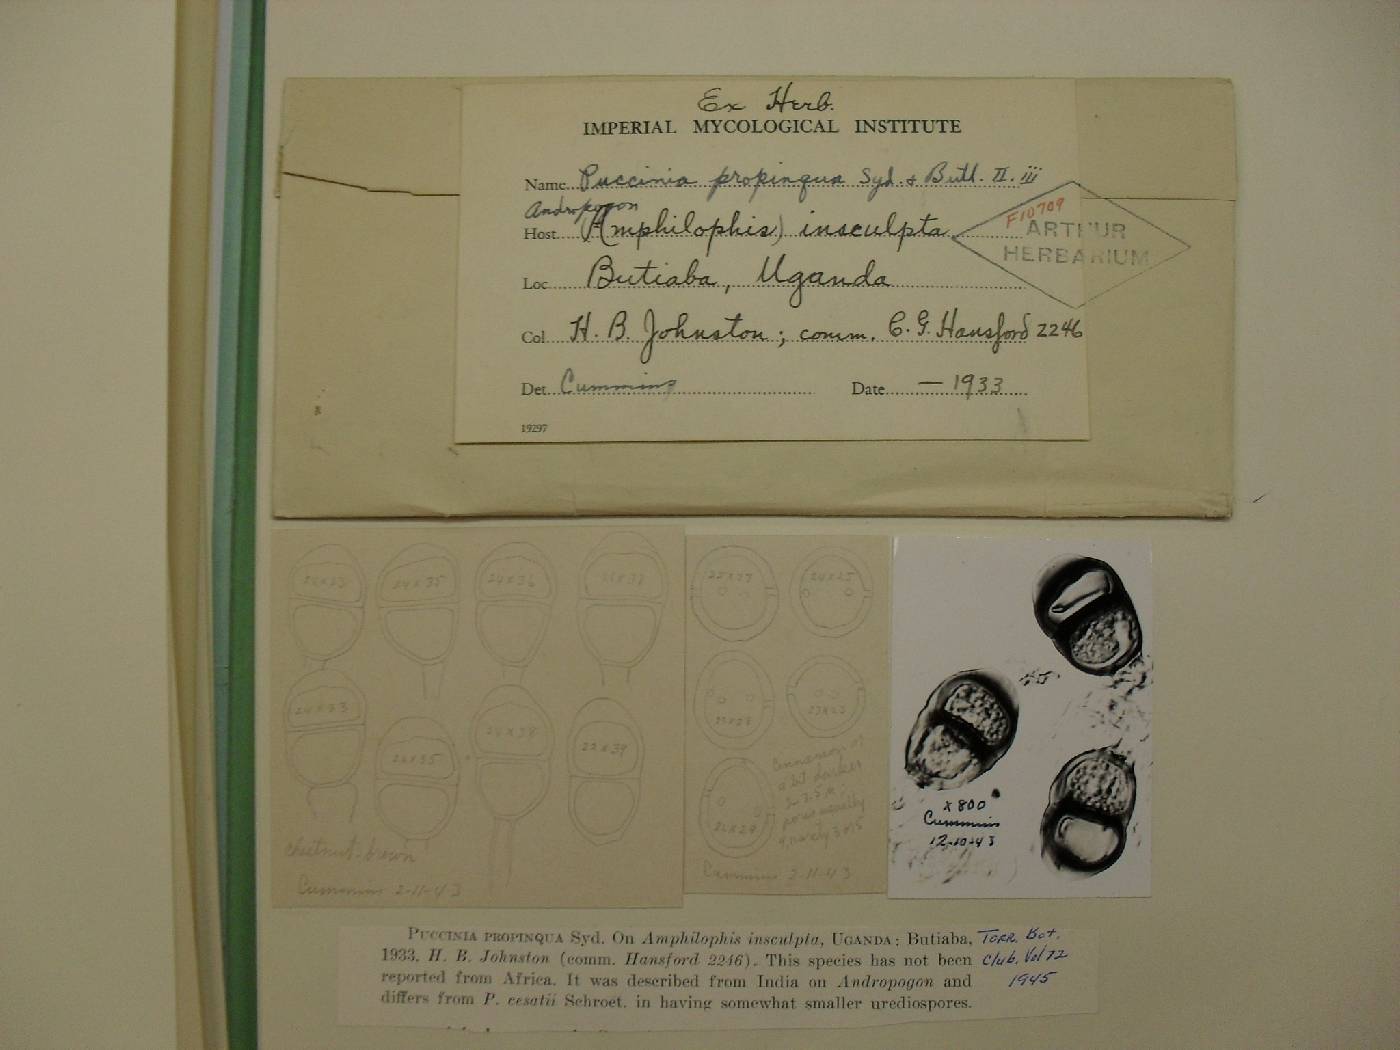 Ex Herb.
IMPERIAL MYCOLOGICAL INSTITUTE
Name Puccinia propinqua Syd. & Butl. II. iii
Andropogon
Host (Amphilophis) insculpta
F10709
ARTHUR
HERBARIUM
Loc Butiaba, Uganda
Col H. B. Johnston; comm. C. G. Hansford 2246
Det Cummins Date — 1933
19297
24X35 24X36
24X33
24X38
22X39
26X35
chestnut-brown
Cummins 2-11-43
24X25
23X23
22X29
cinnamon or
a bit darker
pores usually
4, rarely 3 or 5
Cummins 2-11-43
X 800
Cummins
12-10-43
PUCCINIA PROPINQUA Syd. On Amphilophis insculpta, UGANDA: Butiaba,
1933, H. B. Johnston (comm. Hansford 2246). This species has not been
reported from Africa. It was described from India on Andropogon and
differs from P. cesatii Schroet. in having somewhat smaller urediospores.
Torr. Bot.
Club. Vol 72
1945